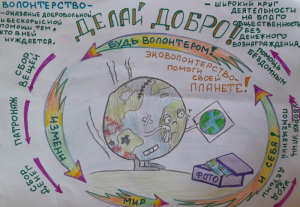 ВОЛОНТЕРСТВО-
-ОКАЗАНИЕ ДОБРОВОЛЬНОЙ
И БЕСКОРЫСТНОЙ
ПОМОЩИ ТЕМ,
КТО В НЕЙ
НУЖДАЕТСЯ.
ДЕЛАЙ ДОБРО!!
- ШИРОКИЙ КРУГ
ДЕЯТЕЛЬНОСТИ
НА БЛАГО
ОБЩЕСТВЕННОСТИ
БЕЗ
ДЕНЕЖНОГО
ВОЗНАГРАЖДЕНИЯ.
БУДЬ ВОЛОНТЕРОМ!
ЭКОВОЛОНТЕРСТВО-
ПОМОГИ
СВОЕЙ
ПЛАНЕТЕ!
СБОР
ВЕЩЕЙ
ПАТРОНАЖ
СБОР
ДЕНЕГ
ПОМОЩЬ
БЕЗДОМНЫМ
УБОРКА
ПОМЕЩЕНИЙ
ИЗМЕНИ
МИР
И СЕБЯ!
ФОТО